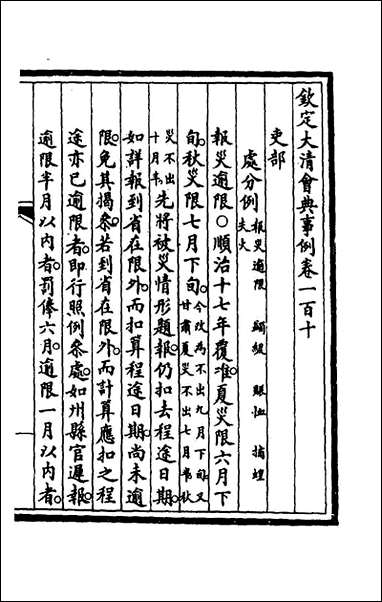 欽定大清會典事例卷一百十
吏部
處分例 報災逾限 蠲緩 賑恤 捕蝗
失火
報災逾限○順治十七年覆准。夏災限六月下
旬。秋災限七月下旬。今改為不出九月下旬。又甘肅夏災不出七月半。秋
災不出十月半。先將被災情形題報。仍扣去程途日期。
如詳報到省在限外。而扣算程途日期。尚未逾
限。免其揭參。若到省在限外。而計算應扣之程
途亦已逾限者。即行照例參處。如州縣官遲報。
逾限半月以內者。罰俸六月。逾限一月以內者。